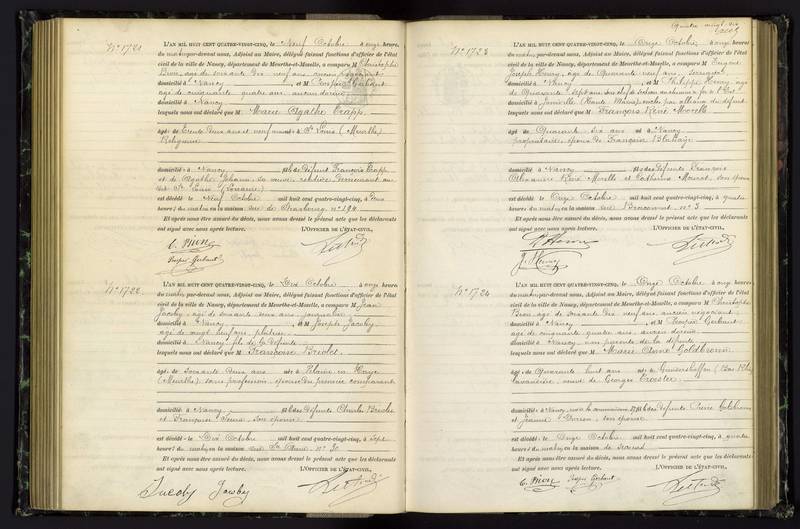 N° 1721
L'AN MIL HUIT CENT QUATRE-VINGT-CINQ, le Neuf Octobre à onze heures
du matin par-devant nous, Adjoint au Maire, délégué faisant fonctions d'officier de l'état
civil de la ville de Nancy, département de Meurthe-et-Moselle, a comparu M Christophe
Bion, âgé de soixante dix neuf ans, ancien négociant
domicilié à Nancy, et M Prosper Gerbaut
âgé de cinquante quatre ans, ancien
domicilié à Nancy
lesquels nous ont déclaré que M Marie Agathe Crapp
âgée de Trente deux ans et neuf mois née à St Louis (Meurthe)
Religieuse
domiciliée à Nancy fille de défunt François Crapp
et de Agathe Johann, sa veuve, rentière, demeurant au
dit St Louis (Lorraine)
est décédée le Neuf Octobre mil huit cent quatre-vingt-cinq, à deux
heures du matin en la maison rue de Strasbourg n° 194
Et après nous être assuré du décès, nous avons dressé le présent acte que les déclarants
ont signé avec nous après lecture. L'OFFICIER DE L'ÉTAT-CIVIL,
C. Bion
Prosper Gerbaut
N° 1722
L'AN MIL HUIT CENT QUATRE-VINGT-CINQ, le Dix Octobre à onze heures
du matin par-devant nous, Adjoint au Maire, délégué faisant fonctions d'officier de l'état
civil de la ville de Nancy, département de Meurthe-et-Moselle, a comparu M Jean
Jacoby, âgé de soixante deux ans, journalier
domicilié à Nancy, et M Joseph Jacoby
âgé de vingt neuf ans, plâtrier
domicilié à Nancy, fils de la défunte
lesquels nous ont déclaré que M Françoise Briolet
âgée de soixante deux ans née à Velaine en Haye
(Meurthe), sans profession, épouse du premier comparant
domiciliée à Nancy fille des défunts Charles Briolet
et Françoise son épouse
est décédée le Dix Octobre mil huit cent quatre-vingt-cinq, à sept
heures du matin en la maison rue n° 30
Et après nous être assuré du décès, nous avons dressé le présent acte que les déclarants
ont signé avec nous après lecture. L'OFFICIER DE L'ÉTAT-CIVIL,
Jacoby Jacoby
quatre vingt dix
N° 1723
L'AN MIL HUIT CENT QUATRE-VINGT-CINQ, le Onze Octobre à onze heures
du matin par-devant nous, Adjoint au Maire, délégué faisant fonctions d'officier de l'état
civil de la ville de Nancy, département de Meurthe-et-Moselle, a comparu M Eugène
Joseph Henry, âgé de Quarante neuf ans
domicilié à Nancy, et M Philippe Henry, âgé
de Quarante sept ans, chef de section au chemin de fer de l'Est
domicilié à Joinville (Haute Marne) proche par alliance du défunt
lesquels nous ont déclaré que M François René Morelle
âgé de Quarante six ans né à Nancy
propriétaire, époux de Françoise
domicilié à Nancy fils des défunts François
Alexandre René Morelle et Catherine son épouse
est décédé le Onze Octobre mil huit cent quatre-vingt-cinq, à quatre
heures du matin en la maison rue Braconnot n° 3
Et après nous être assuré du décès, nous avons dressé le présent acte que les déclarants
ont signé avec nous après lecture. L'OFFICIER DE L'ÉTAT-CIVIL,
J. Henry
N° 1724
L'AN MIL HUIT CENT QUATRE-VINGT-CINQ, le Onze Octobre à onze heures
du matin par-devant nous, Adjoint au Maire, délégué faisant fonctions d'officier de l'état
civil de la ville de Nancy, département de Meurthe-et-Moselle, a comparu M Christophe
Bion, âgé de soixante dix neuf ans, ancien négociant
domicilié à Nancy, et M Prosper Gerbaut
âgé de cinquante quatre ans, ancien
domicilié à Nancy non parents de la défunte
lesquels nous ont déclaré que M Marie Anne Goldbronn
âgée de Quarante huit ans née à Gundershoffen (Bas Rhin)
lavandière, veuve de Georges
domiciliée à Nancy fille des défunts Pierre Goldbronn
et Jeanne son épouse
est décédée le Onze Octobre mil huit cent quatre-vingt-cinq, à quatre
heures du matin en la maison de Secours
Et après nous être assuré du décès, nous avons dressé le présent acte que les déclarants
ont signé avec nous après lecture. L'OFFICIER DE L'ÉTAT-CIVIL,
C. Bion Prosper Gerbaut